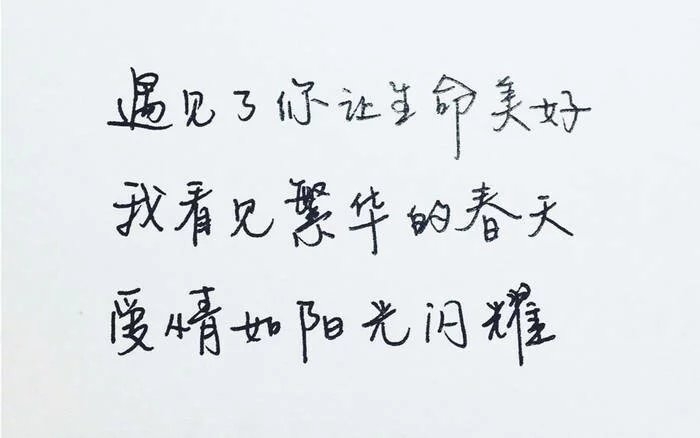 遇见了你让生命美好
我看见繁华的春天
爱情如阳光闪耀